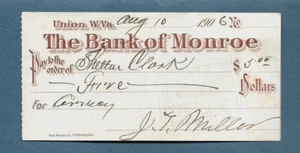 Union, W.Va. Aug 10 1906 No
The Bank of Monroe
Pay to the order of Clark $5.00
Five Dollars
For
J. F. Miller